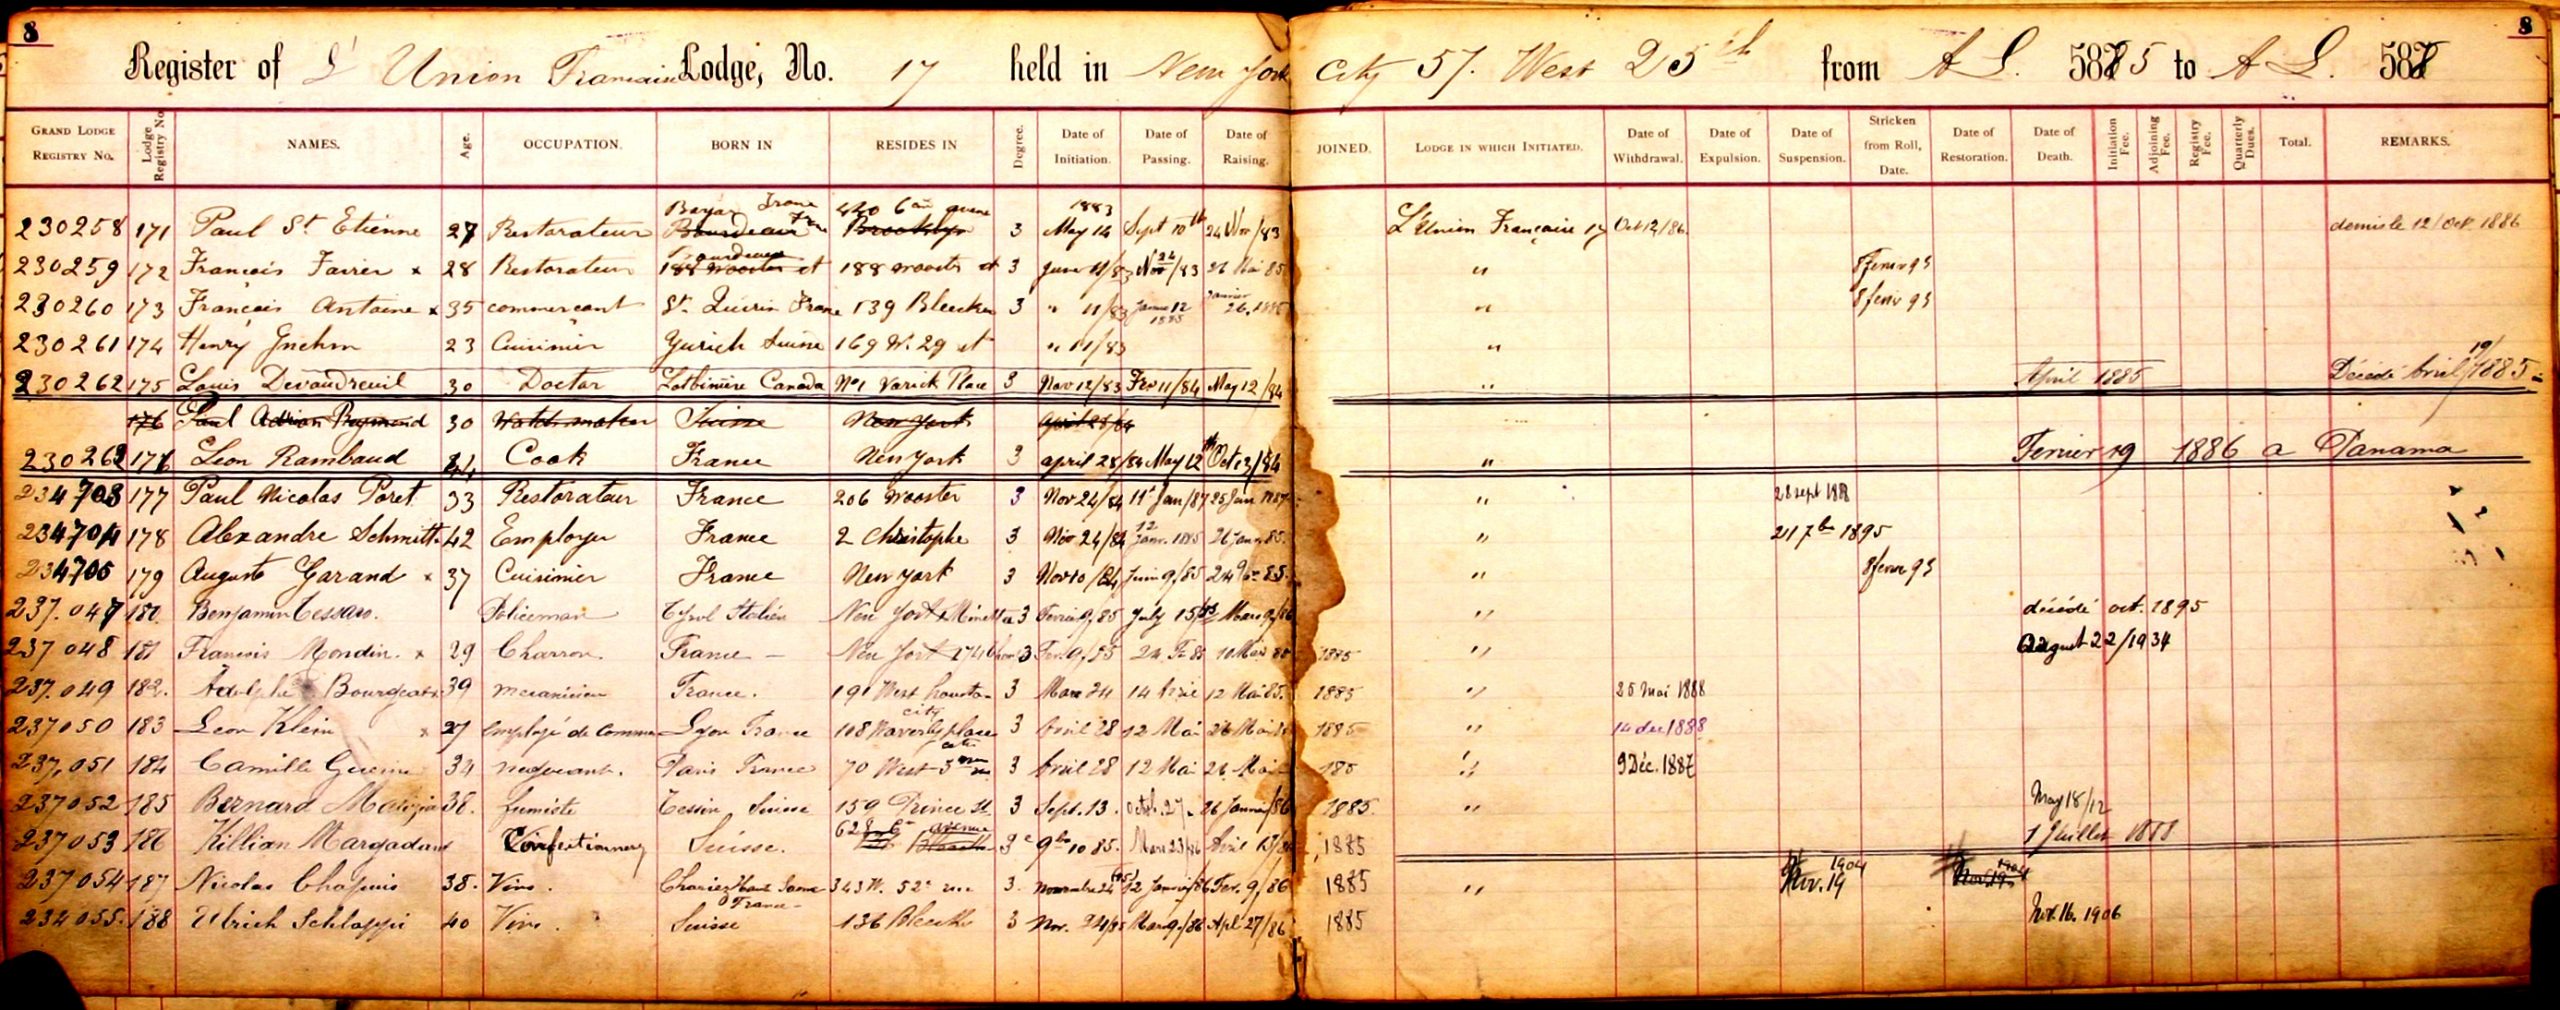 8 8
Register of L'Union Francaise Lodge, No. 17 held in New York City 57. West 25th from A L. 5885 to A L. 588
GRAND LODGE REGISTRY NO. Lodge Registry No. NAMES. Age. OCCUPATION. BORN IN RESIDES IN Degree. Date of Initiation. Date of Passing. Date of Raising. JOINED. LODGE IN WHICH INITIATED. Date of Withdrawal. Date of Expulsion. Date of Suspension. Stricken from Roll, Date. Date of Restoration. Date of Death. Initiation Fee. Adjoining Fee. Registry Fee. Quarterly Dues. Total. REMARKS.
1883
230258 171 Paul St Etienne 27 Restorateur Brooklyn 3 May 14 Sept 10th 24 Nov/83 L'Union Française 17 Oct 12/86. 12/Oct. 1886
230259 172 François Favier x 28 Restorateur 188 Wooster st 188 Wooster st 3 June 11/83 Nov 24/83 26 Mai 85 " 8 fevrier 93
230260 173 Français Antoine x 35 commerçant St. Quirin France 139 Bleecker 3 " 11/83 Janvier 12 1885 Janvier 26, 1885 " 8 fevr 93
230261 174 Henry Gnehm 23 Cuisinier Zurich Suisse 169 W. 29 st " 11/83 "
230262 175 Louis Devaudreuil 30 Doctor Lotbinière Canada No 1 Varick Place 3 Nov 12/83 Fev 11/84 May 12/84 " April 1885 Décédé Avril 19/1885
176 Paul Adrian Raymond 30 Watchmaker Suisse New York April 28/84
230263 176 Leon Rambaud 44 Cook France New York 3 april 28/84 May 12th Oct 13/84 " Fevrier 19 1886 a Panama
234703 177 Paul Nicolas Poret 33 Restorateur France 206 Wooster 3 Nov 24/84 11t Jan/87 25 Jan 1887 " 28 sept 1888
234704 178 Alexandre Schmitt 42 Employer France 2 Christophe 3 Nov 24/84 12 Janv. 1885 26 Janv 85. " 21 7bre 1895
234705 179 Auguste Garand x 37 Cuisinier France New York 3 Nov 10/84 Juin 9/85 24 9bre 85. " 8 fevr 93
237.047 180. Benjamin Tessaro. Policeman Tyrol Italien New York 3 Fevrier 9/85 July 15/85 Mars 9/86 " décédé oct. 1895
237 048 181 Francois Mondin. x 29 Charron. France New York 3 Fev. 9/85 24 Fe 85 10 Mars 85 1885 " August 22/1934
237.049 182. Adolphe Bourgeat x 39 mecanicien France. 191 West houston 3 Mars 24 14 Avril 12 Mai 85. 1885 " 25 Mai 1888
237050 183 Leon Klein x 27 Employé de Commerce Lyon France 108 Waverly place city 3 Avril 28 12 Mai 26 Mai 85 1885 " 14 dec 1888
237.051 184 Camille Guerin 34 negociant. Paris France 70 West 3me 3 Avril 28 12 Mai 26 Mai 188 " 9 Déc. 1887
237052 185 Bernard 38. fumiste Tessin Suisse 159 Prince St. 3 Sept. 13. Octob. 27. 26 Janvier/86 1885. " May 18/12
237053 186 Killian Margadant Confectionnery Suisse. 628 6e avenue 3e 9bre 10 85. Mars 23/86 Avril 13/86 1885 1 Juillet 1888
237054 187 Nicolas Chapuis 38. Vins. Haute Saone France 343 W. 52e rue 3. novembre 24 12 Janvier/86 Fev. 9/86 1885 " Nov. 19 1904 Nov. 19 1904
234055. 188 Ulrich Schlappi 40 Vins. Suisse 136 Bleecker 3 Nov. 24/85 Mars 9/86 Apl 27/86 1885 Nov. 16. 1906